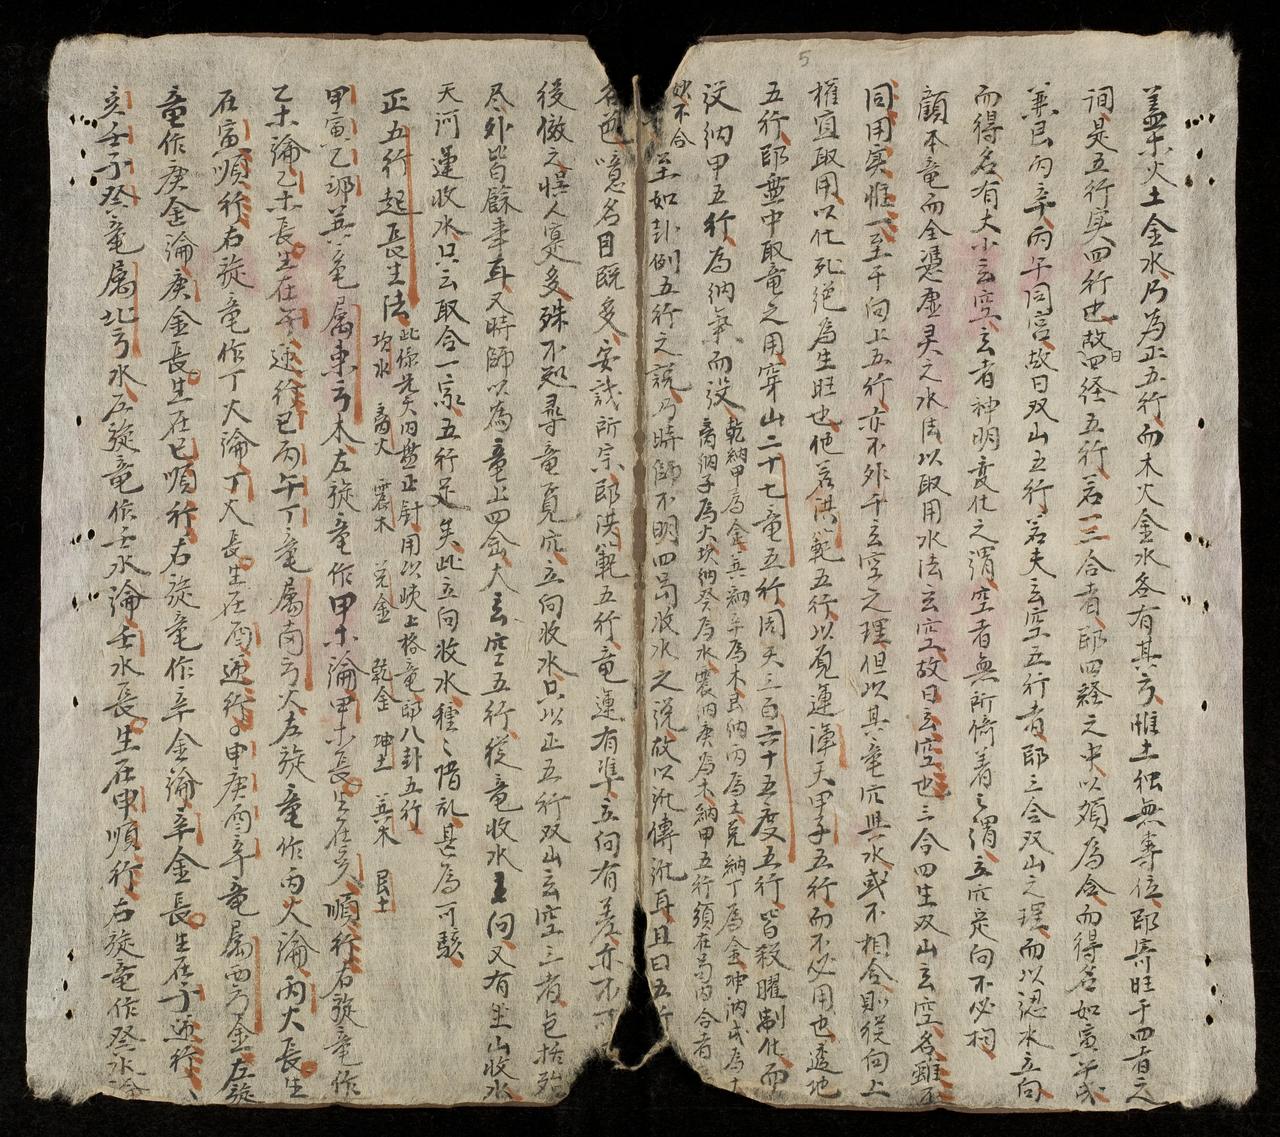 蓋木火土金水乃為正五行而木火金水各有其方惟土独無專位郎寄旺于四者之
间是五行実四行也故曰四経五行若三合者郎四経之中以類為合而得名如寅午戌
兼艮丙辛丙午同宫故曰双山五行若夫玄空五行者郎三合双山之理而以認水立向
而得名有大小玄空玄者神明变化之谓空者無所倚着之谓立穴定向不必构
顧本竜而全憑虚灵之水法以取用水法玄空故曰玄空也三合四生双山玄空名雖不
同用实惟一至于向上五行亦不外于玄空之理但以其竜穴與水或不相合則從向上
權宜取用以化死绝為生旺也他若洪範五行以覓運渾天甲子五行而不必用也透地
五行郎無中取竜之用穿山二十七竜五行周天三百六十五度五行皆殺曜制化而
设納甲五行為納氣而设乾納甲為金巽納辛為木艮納丙為土兑納丁為金坤納戌為土
离納子為火坎納癸為水震納庚為木納甲五行须在局内合者
妙不合至如卦例五行之説乃時師不明四局收水之说故以訛傳訛耳且曰五行
名色噫名目既多安識所宗郎洪範五行竜運有準立向有差亦不
後傲之悮人寔多殊不知尋竜覓穴立向收水只以正五行双山玄空三者包括殆
尽外皆餘事耳又時師以為竜上四金大玄空五行從竜收水王向又有坐山收水
天河運收水只云取合一家五行足矣此立向收水種〻惜乱甚為可駭
正五行起長生法此係先天内盤正針用以峡上格竜郎八卦五行
坎水 离火 震木 兑金 乾金 坤土 巽木 艮土
甲寅乙卯巽竜属東方木左旋竜作甲木論甲木長生在亥順行右旋竜作
乙木論乙木長生在午逆行巳丙午丁竜属南方火左旋竜作丙火論丙火長生
在寅順行右旋竜作丁火論丁火長生在酉逆行申庚酉辛竜属西方金左旋
竜作庚金論庚金長生在巳順行右旋竜作辛金論辛金長生在子逆行
亥壬子癸竜属北方水左旋竜作壬水論壬水長生在申順行右旋竜作癸水論